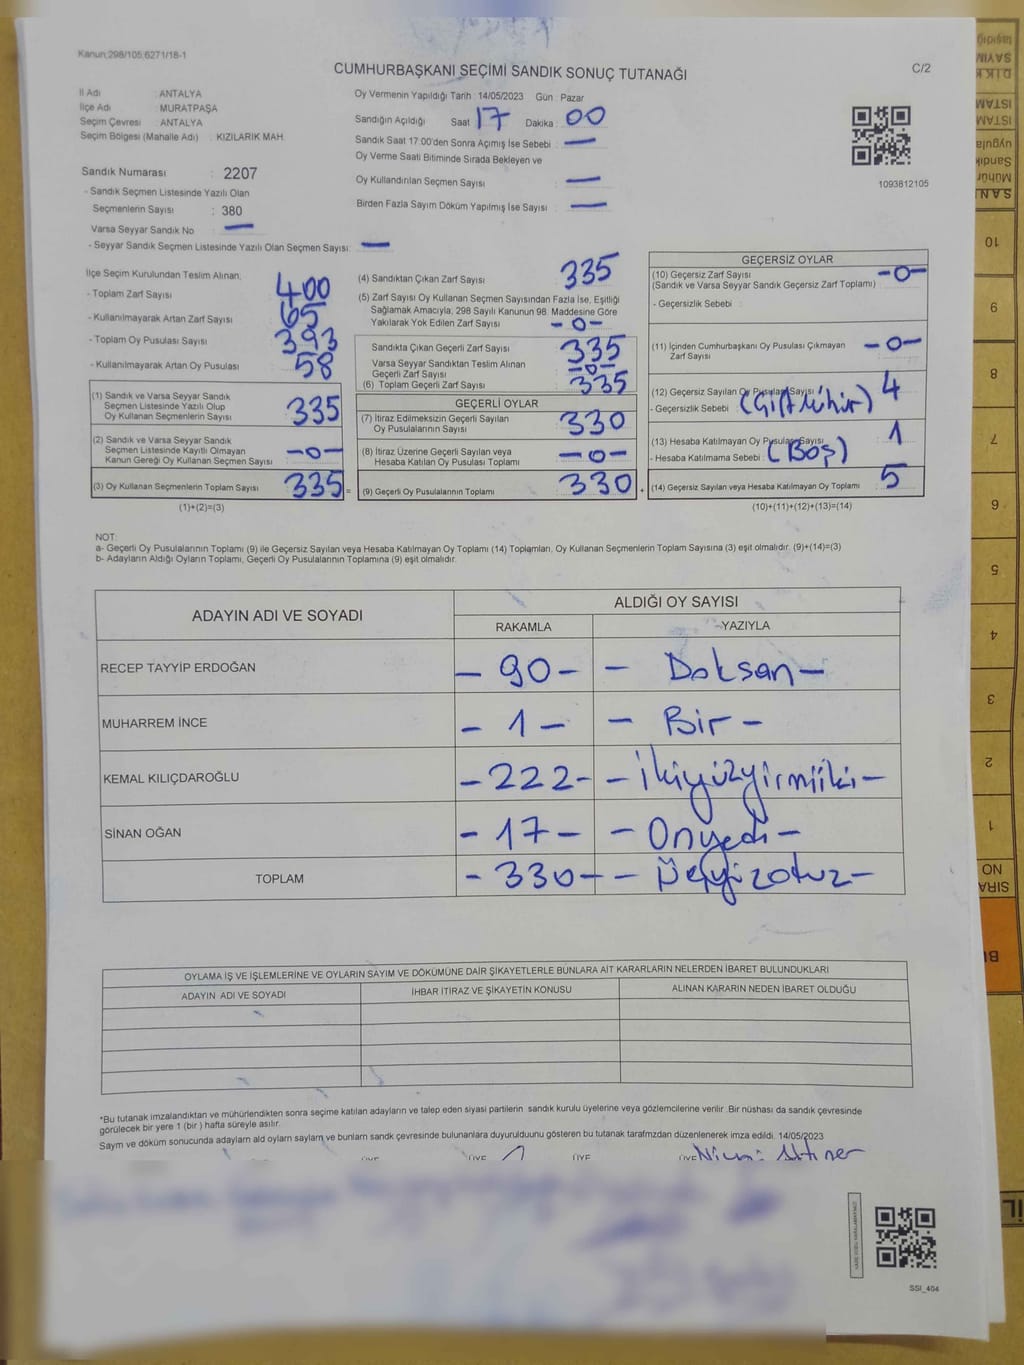 Kanun 298/105 6271/18-1
CUMHURBAŞKANI SEÇİMİ SANDIK SONUÇ TUTANAĞI
C/2
İl Adı : ANTALYA
İlçe Adı : MURATPAŞA
Seçim Çevresi : ANTALYA
Seçim Bölgesi (Mahalle Adı) : KIZILARIK MAH.
Sandık Numarası : 2207
- Sandık Seçmen Listesinde Yazılı Olan
Seçmenlerin Sayısı : 380
Varsa Seyyar Sandık No : —
- Seyyar Sandık Seçmen Listesinde Yazılı Olan Seçmen Sayısı : —
Oy Vermenin Yapıldığı Tarih : 14/05/2023 Gün : Pazar
Sandığın Açıldığı Saat 17 Dakika : 00
Sandık Saat 17.00'den Sonra Açımış İse Sebebi : —
Oy Verme Saati Bitiminde Sırada Bekleyen ve
Oy Kullandırılan Seçmen Sayısı : —
Birden Fazla Sayım Döküm Yapılmış İse Sayısı : —
1093812105
İlçe Seçim Kurulundan Teslim Alınan;
- Toplam Zarf Sayısı : 400
- Kullanılmayarak Artan Zarf Sayısı : 65
- Toplam Oy Pusulası Sayısı : 393
- Kullanılmayarak Artan Oy Pusulası : 58
(1) Sandık ve Varsa Seyyar Sandık
Seçmen Listesinde Yazılı Olup
Oy Kullanan Seçmenlerin Sayısı : 335
(2) Sandık ve Varsa Seyyar Sandık
Seçmen Listesinde Kayıtlı Olmayan
Kanun Gereği Oy Kullanan Seçmen Sayısı : -0-
(3) Oy Kullanan Seçmenlerin Toplam Sayısı : 335 =
(1)+(2)=(3)
(4) Sandıktan Çıkan Zarf Sayısı : 335
(5) Zarf Sayısı Oy Kullanan Seçmen Sayısından Fazla İse, Eşitliği
Sağlamak Amacıyla, 298 Sayılı Kanunun 98. Maddesine Göre
Yakılarak Yok Edilen Zarf Sayısı : -0-
Sandıkta Çıkan Geçerli Zarf Sayısı : 335
Varsa Seyyar Sandıktan Teslim Alınan
Geçerli Zarf Sayısı : -0-
(6) Toplam Geçerli Zarf Sayısı : 335
GEÇERLİ OYLAR
(7) İtiraz Edilmeksizin Geçerli Sayılan
Oy Pusulalarının Sayısı : 330
(8) İtiraz Üzerine Geçerli Sayılan veya
Hesaba Katılan Oy Pusulası Toplamı : -0-
(9) Geçerli Oy Pusulalarının Toplamı : 330 +
GEÇERSİZ OYLAR
(10) Geçersiz Zarf Sayısı : -0-
(Sandık ve Varsa Seyyar Sandık Geçersiz Zarf Toplamı)
- Geçersizlik Sebebi :
(11) İçinden Cumhurbaşkanı Oy Pusulası Çıkmayan : -0-
Zarf Sayısı
(12) Geçersiz Sayılan Oy Pusulası Sayısı : 4
- Geçersizlik Sebebi : (Çift Mühür)
(13) Hesaba Katılmayan Oy Pusulası Sayısı : 1
- Hesaba Katılmama Sebebi : (Boş)
(14) Geçersiz Sayılan veya Hesaba Katılmayan Oy Toplamı : 5
(10)+(11)+(12)+(13)=(14)
NOT:
a- Geçerli Oy Pusulalarının Toplamı (9) ile Geçersiz Sayılan veya Hesaba Katılmayan Oy Toplamı (14) Toplamları, Oy Kullanan Seçmenlerin Toplam Sayısına (3) eşit olmalıdır. (9)+(14)=(3)
b- Adayların Aldığı Oyların Toplamı, Geçerli Oy Pusulalarının Toplamına (9) eşit olmalıdır.
ADAYIN ADI VE SOYADI ALDIĞI OY SAYISI
RAKAMLA YAZIYLA
RECEP TAYYİP ERDOĞAN - 90 - - Doksan -
MUHARREM İNCE - 1 - - Bir -
KEMAL KILIÇDAROĞLU - 222 - - İkiyüzyirmiiki -
SİNAN OĞAN - 17 - - Onyedi -
TOPLAM - 330 - - Üçyüzotuz -
OYLAMA İŞ VE İŞLEMLERİNE VE OYLARIN SAYIM VE DÖKÜMÜNE DAİR ŞİKAYETLERLE BUNLARA AİT KARARLARIN NELERDEN İBARET BULUNDUKLARI
ADAYIN ADI VE SOYADI İHBAR İTİRAZ VE ŞİKAYETİN KONUSU ALINAN KARARIN NEDEN İBARET OLDUĞU
*Bu tutanak imzalandıktan ve mühürlendikten sonra seçime katılan adayların ve talep eden siyasi partilerin sandık kurulu üyelerine veya gözlemcilerine verilir. Bir nüshası da sandık çevresinde
görülecek bir yere 1 (bir ) hafta süreyle asılır.
Saym ve döküm sonucunda adaylarn ald oylarn saylarn ve bunlarn sandk çevresinde bulunanlara duyurulduunu gösteren bu tutanak tarafmzdan düzenlenerek imza edildi. 14/05/2023
ÜYE ÜYE ÜYE ÜYE
SSI_404
10
9
8
7
6
5
4
3
2
1
SIRA
NO